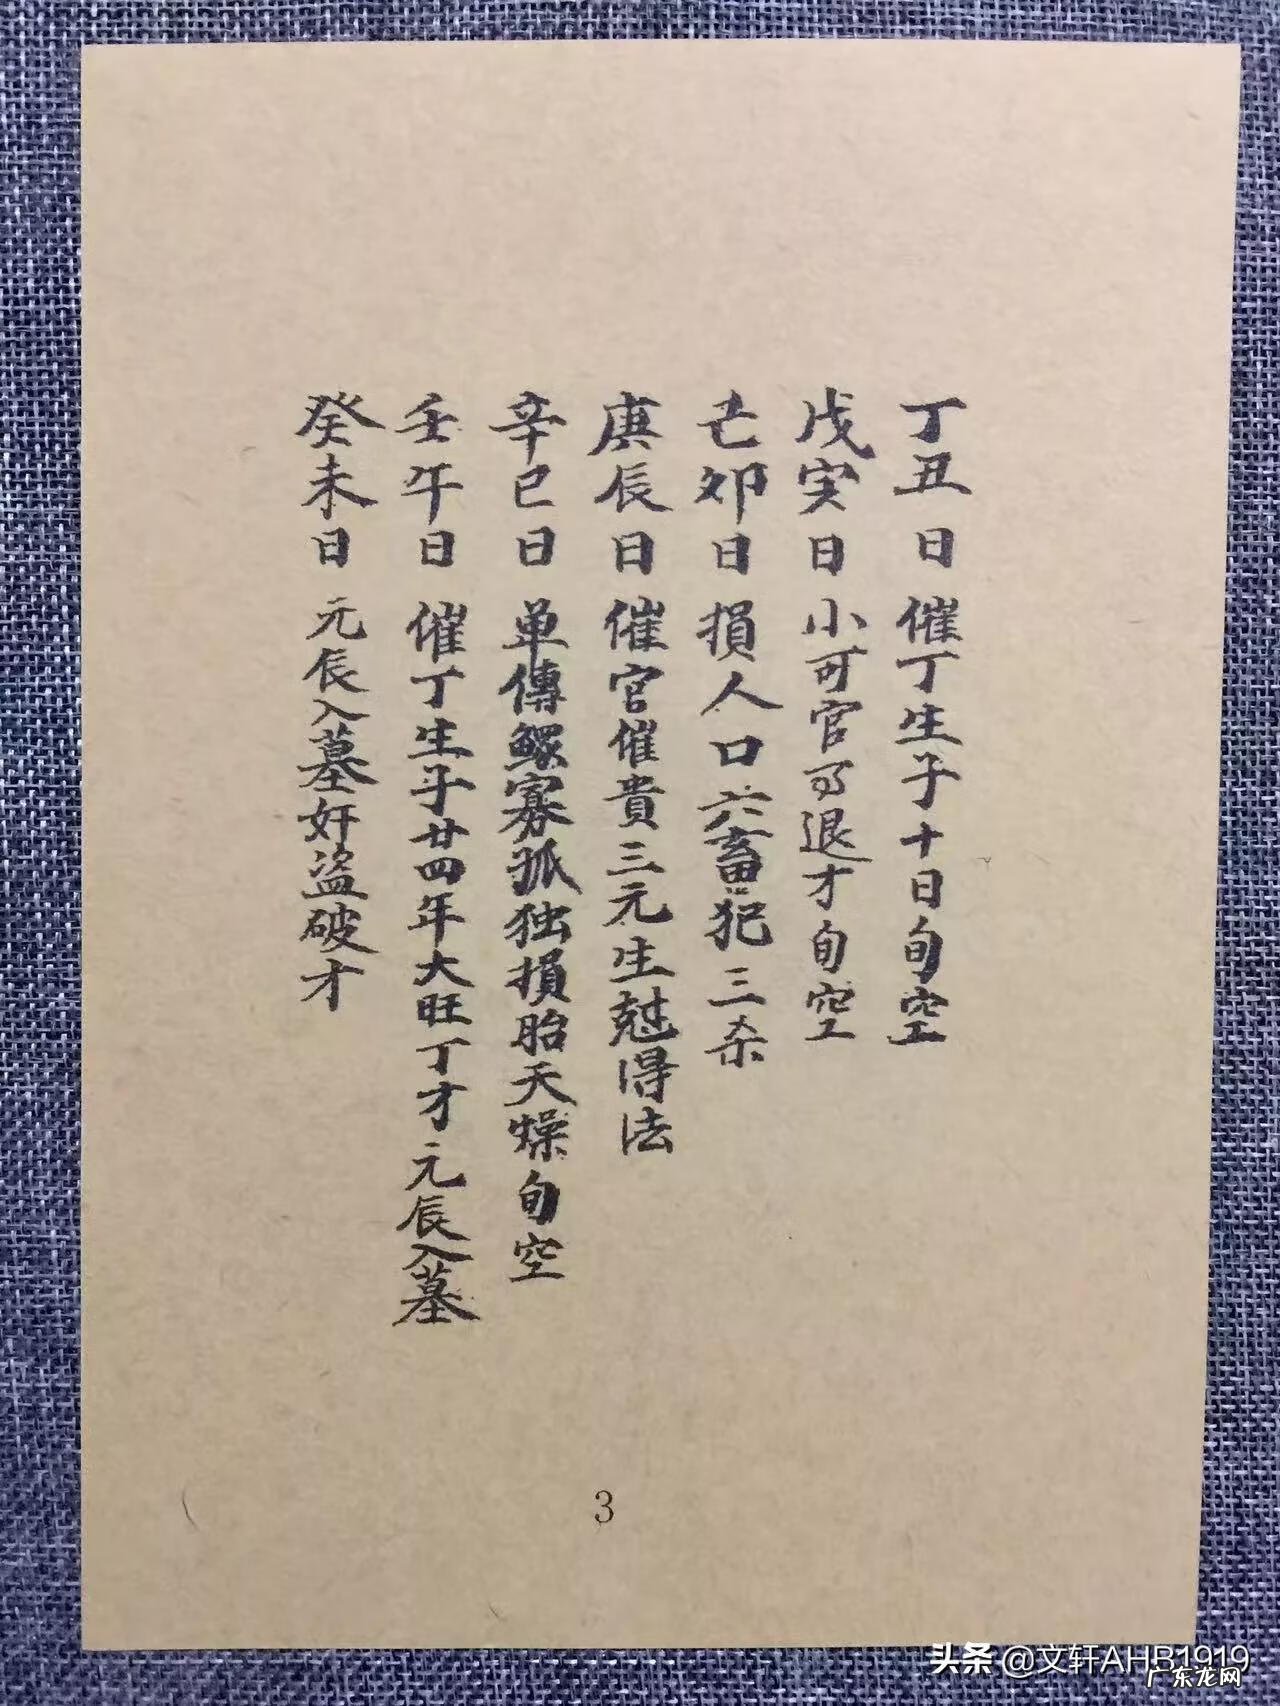 丁丑日 催丁生子十日旬空
戊寅日 小可官司退才旬空
己卯日 損人口六畜犯三杀
庚辰日 催官催貴三元生尅得法
辛巳日 单傳鰥寡孤独損胎天燥旬空
壬午日 催丁生子廿四年大旺丁才元辰入墓
癸未日 元辰入墓奸盗破才
3
头条 @文轩AHB1919
广东龙网